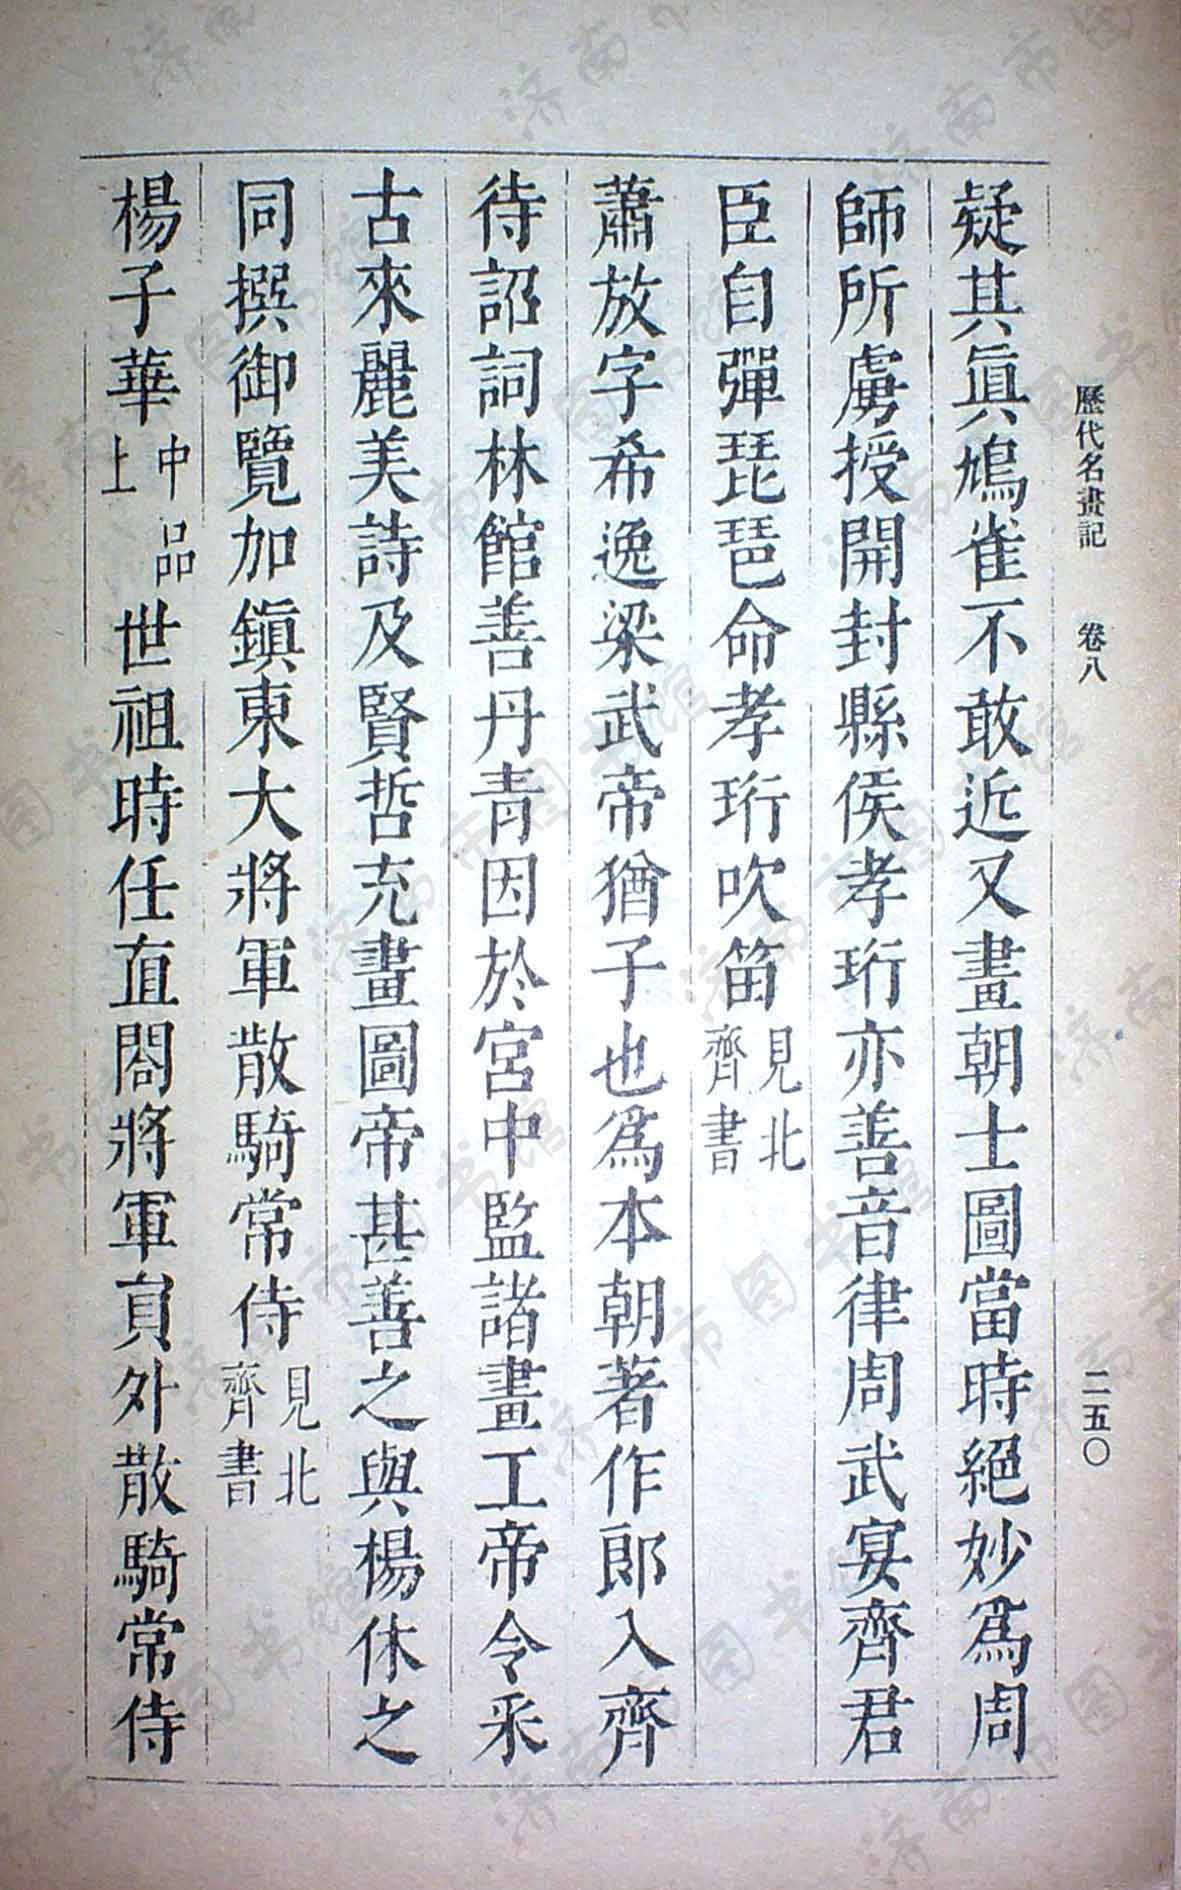 歷代名畫記　卷八　二五〇
疑其眞鳩雀不敢近又畫朝士圖當時絕妙爲周
師所虜授開封縣侯孝珩亦善音律周武宴齊君
臣自彈琵琶命孝珩吹笛見北齊書
蕭放字希逸梁武帝猶子也爲本朝著作郎入齊
待詔詞林館善丹青因於宮中監諸畫工帝令采
古來麗美詩及賢哲充畫圖帝甚善之與楊休之
同撰御覽加鎮東大將軍散騎常侍見北齊書
楊子華中品上世祖時任直閣將軍員外散騎常侍
济南市图书馆